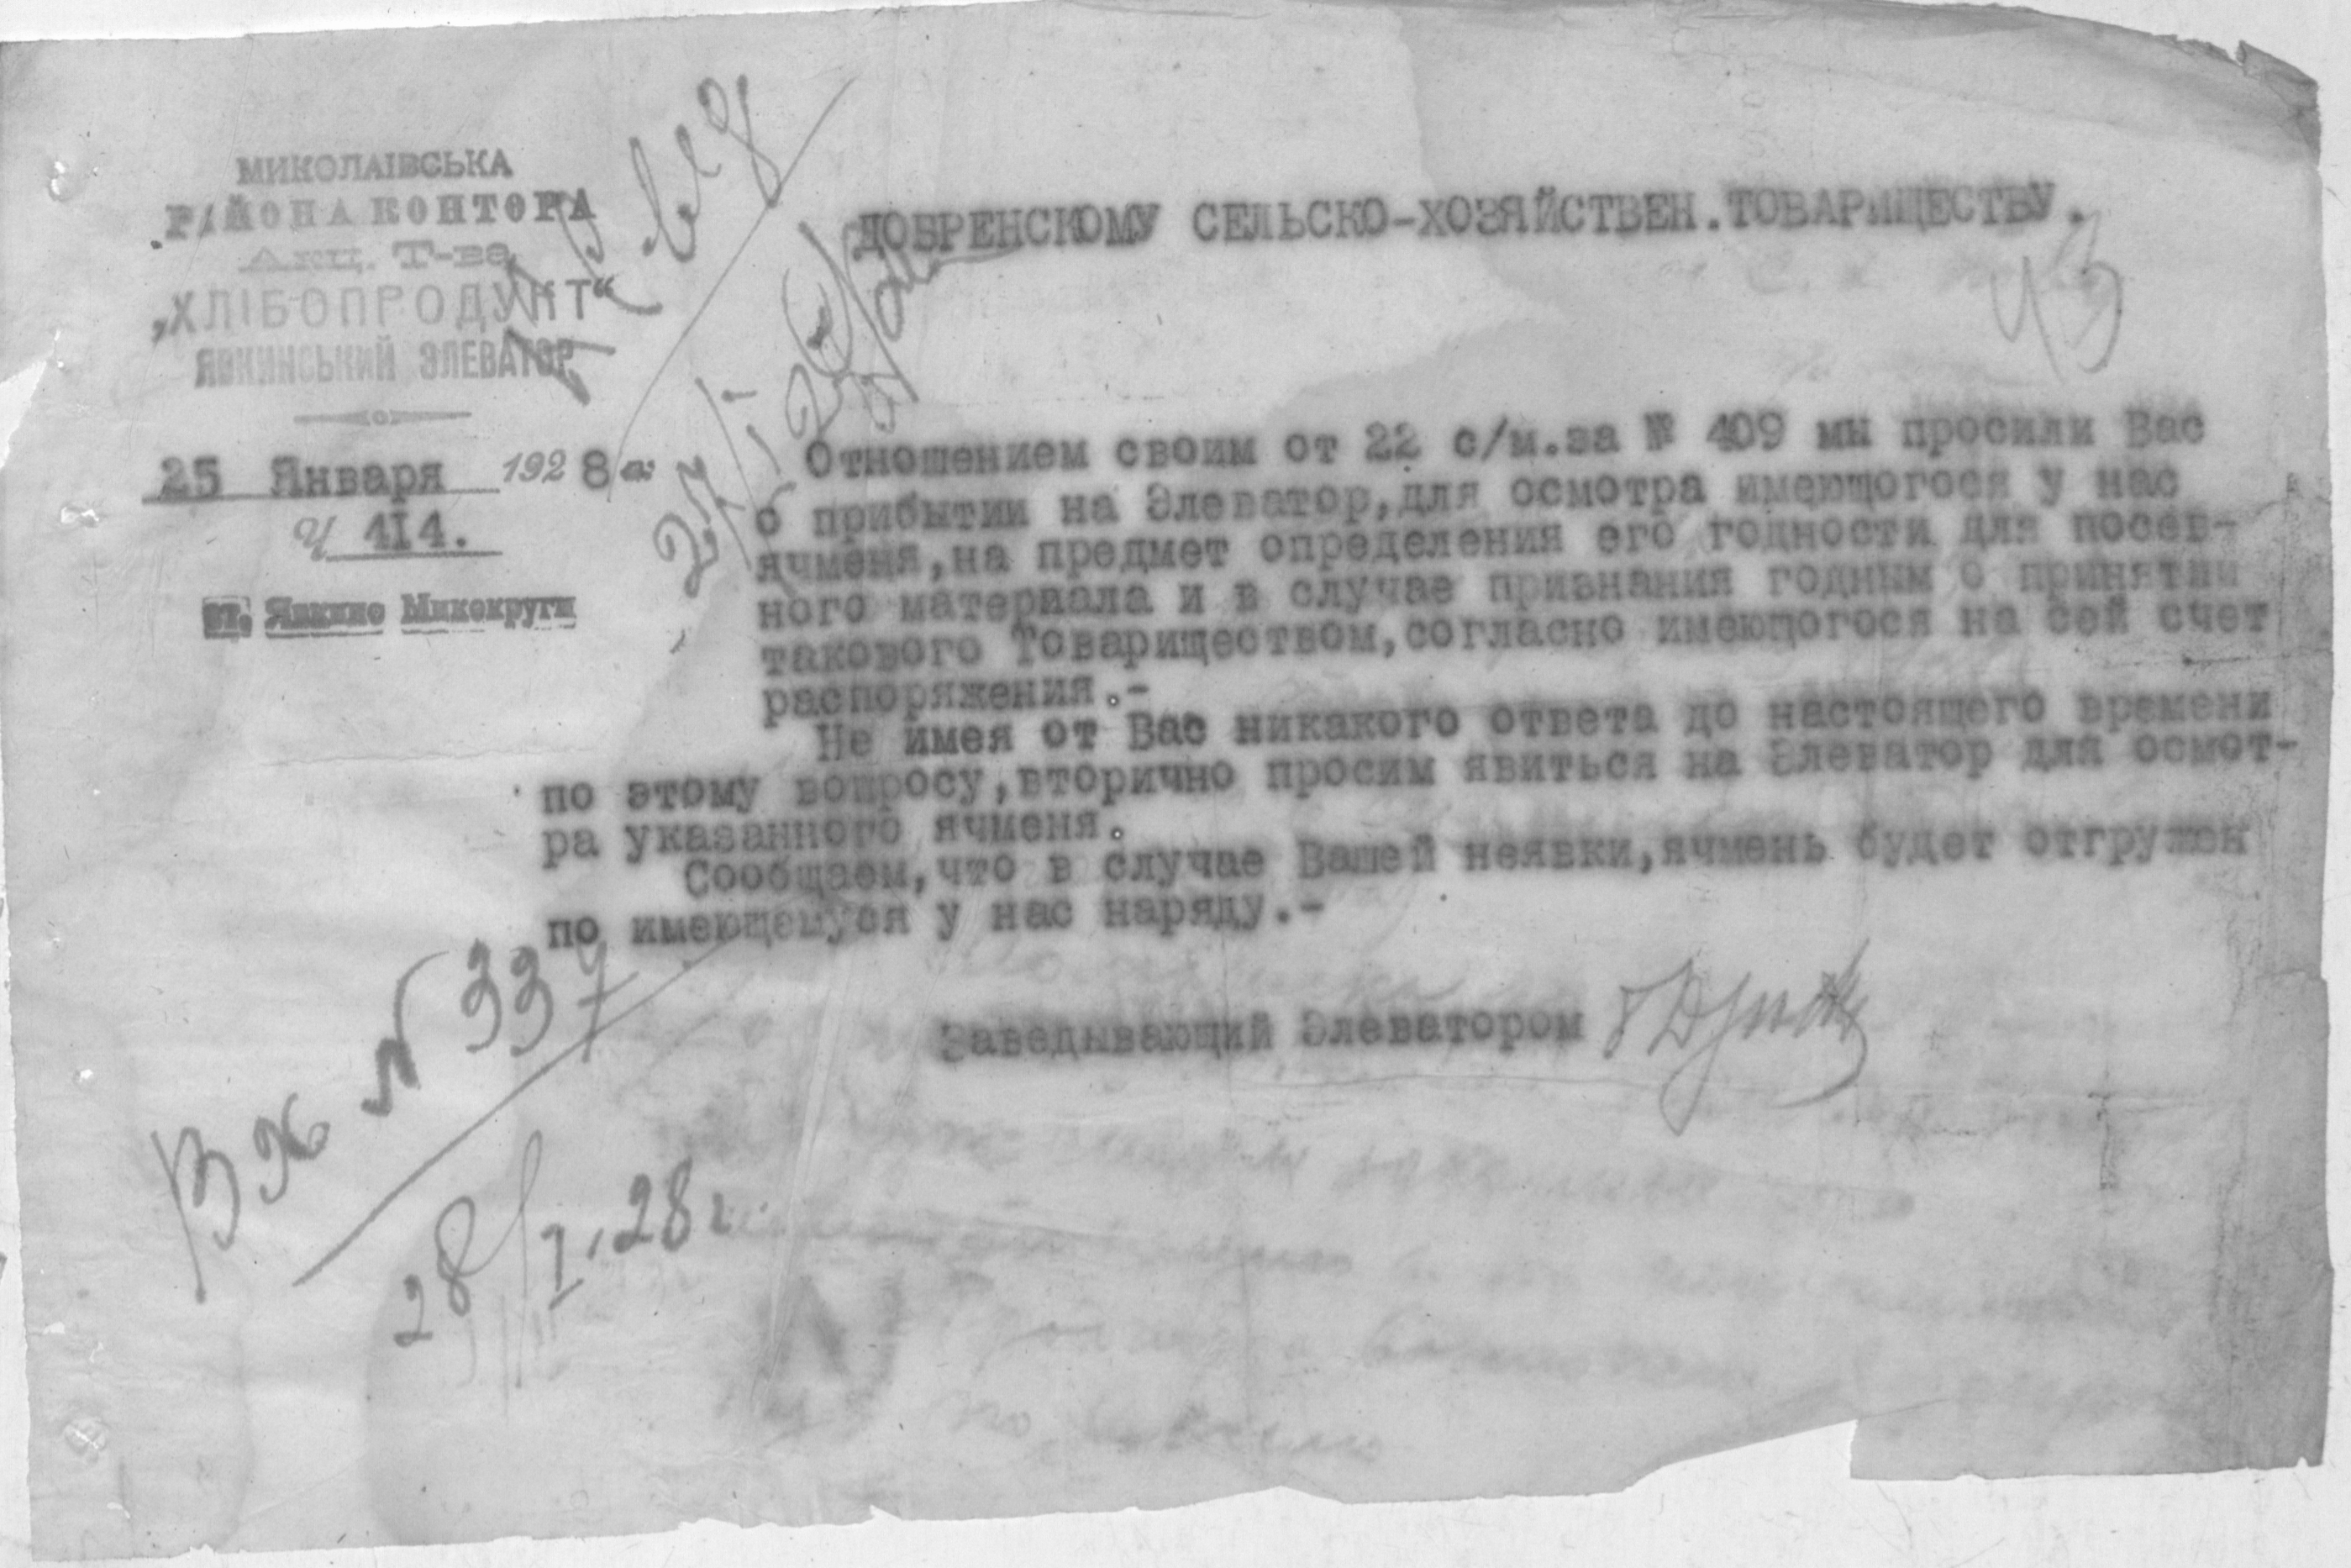 МИКОЛАІВСЬКА
РАЙОНА КОНТОРА
Акц. Т-ва
„ХЛІБОПРОДУКТ“
ЯВКИНСЬКИЙ ЭЛЕВАТОР
25 Января 1928 г.
Ч 4I4.
ст. Явкино Микокруги
ДОБРЕНСКОМУ СЕЛЬСКО-ХОЗЯЙСТВЕН.ТОВАРИЩЕСТВУ.
43
27/I 28
Отношением своим от 22 с/м.за № 409 мы просили Вас
о прибытии на Элеватор,для осмотра имеющогося у нас
ячменя,на предмет определения его годности для посев-
ного материала и в случае признания годным о принятии
такового Товариществом,согласно имеющогося на сей счет
распоряжения.-
Не имея от Вас никакого ответа до настоящего времени
по этому вопросу,вторично просим явиться на Элеватор для осмот-
ра указанного ячменя.
Сообщаем,что в случае Вашей неявки,ячмень будет отгружен
по имеющемуся у нас наряду.-
Заведывающий Элеватором
Вх № 337
28/I.28 г.